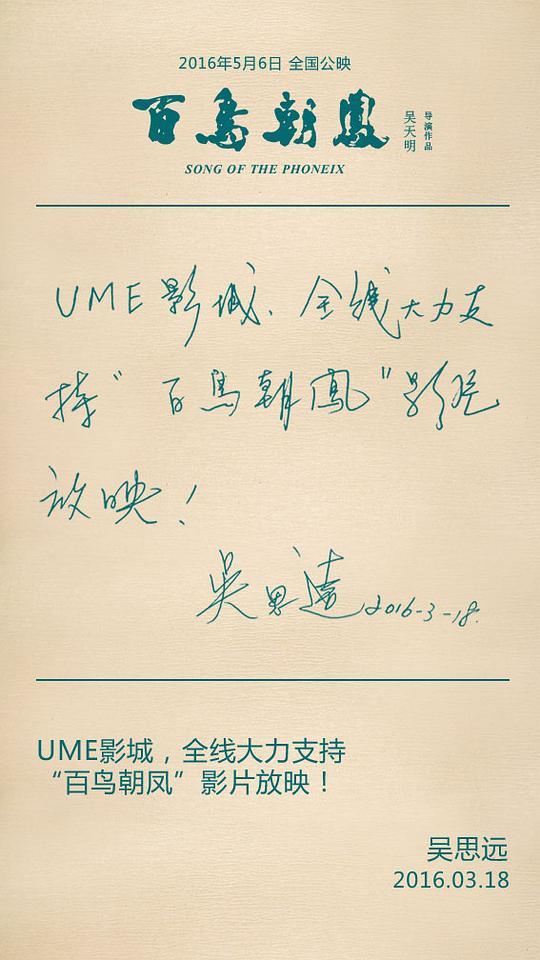 2016年5月6日 全国公映
百鳥朝鳳
吴天明
导演作品
SONG OF THE PHONEIX
UME影城、全线大力支
持“百鸟朝鳳”影片
放映！
吴思遠 2016-3-18.
UME影城，全线大力支持
“百鸟朝凤”影片放映！
吴思远
2016.03.18